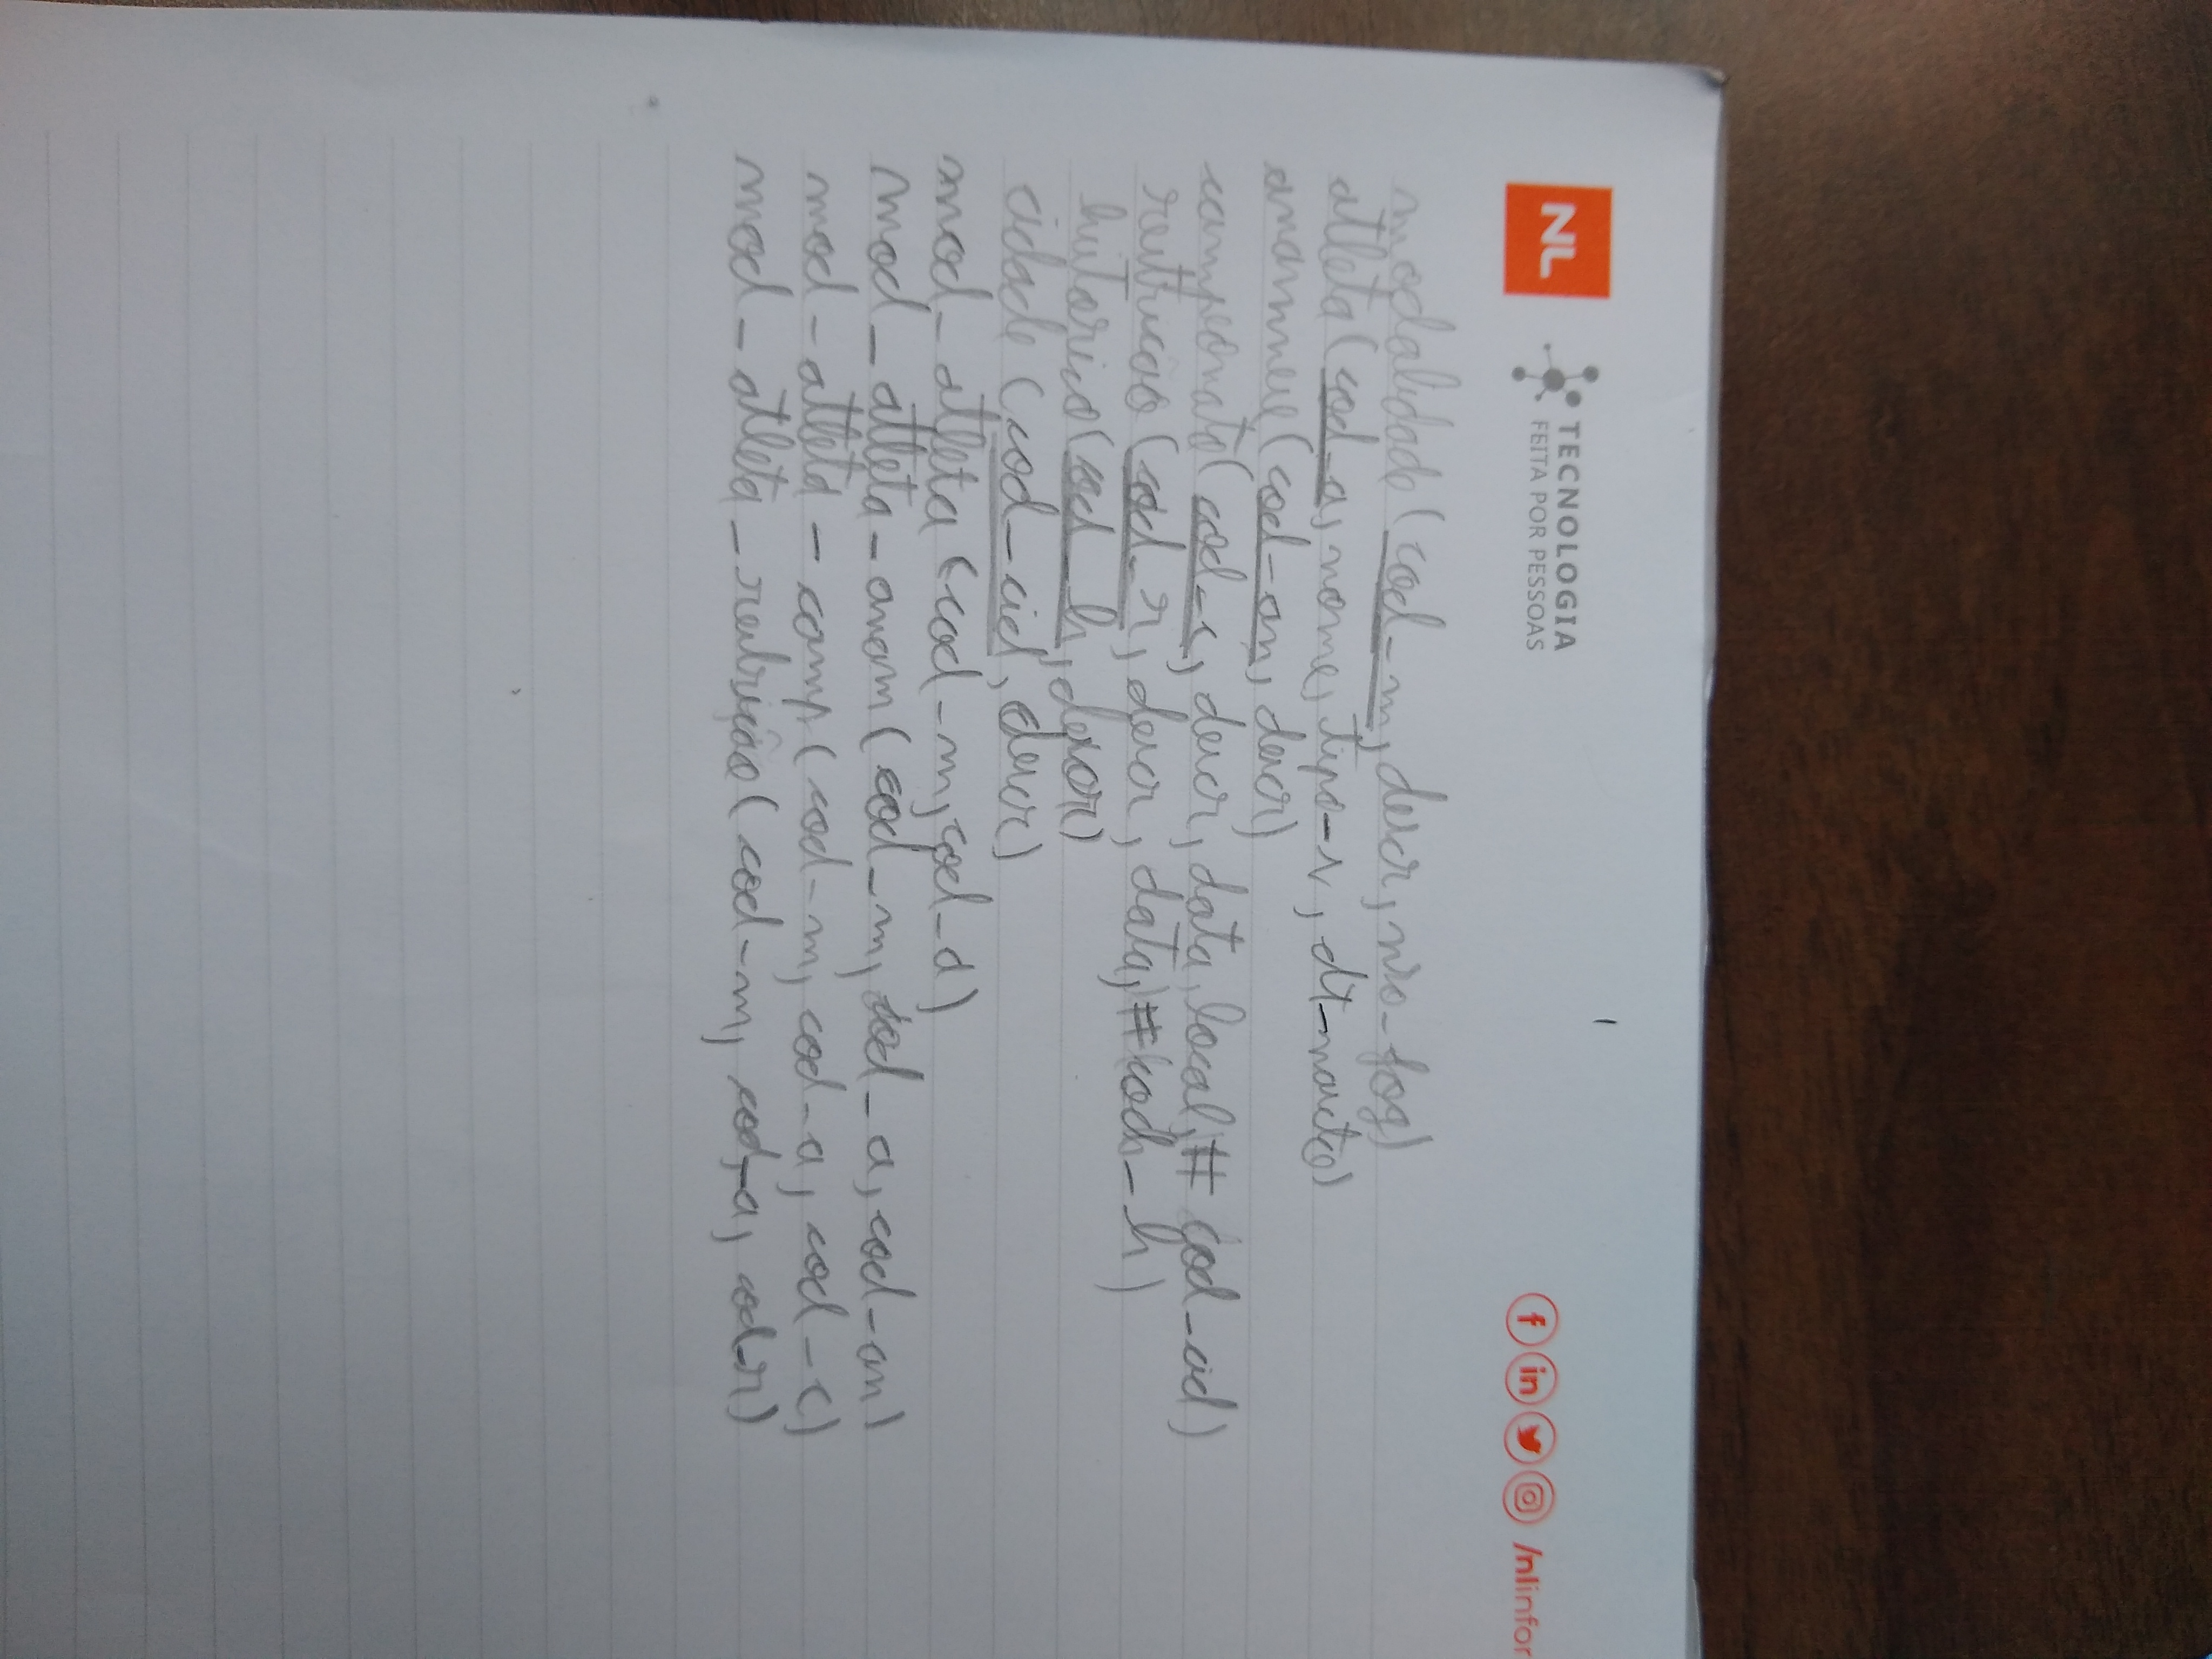 NL TECNOLOGIA
FEITA POR PESSOAS
/nlinfor
modalidade (cod_m, descr, nro_jog)
atleta (cod_a, nome, tipo_s, dt_nascto)
anamnese (cod_an, descr)
campeonato (cod_c, descr, data, local, # cod_cid)
restrição (cod_r, descr, data, #cod_h)
histórico (cod_h, descr)
cidade (cod_cid, descr)
mod_atleta (cod_m, cod_a)
mod_atleta_anam (cod_m, cod_a, cod_an)
mod_atleta_camp (cod_m, cod_a, cod_c)
mod_atleta_restrição (cod_m, cod_a, cod_r)